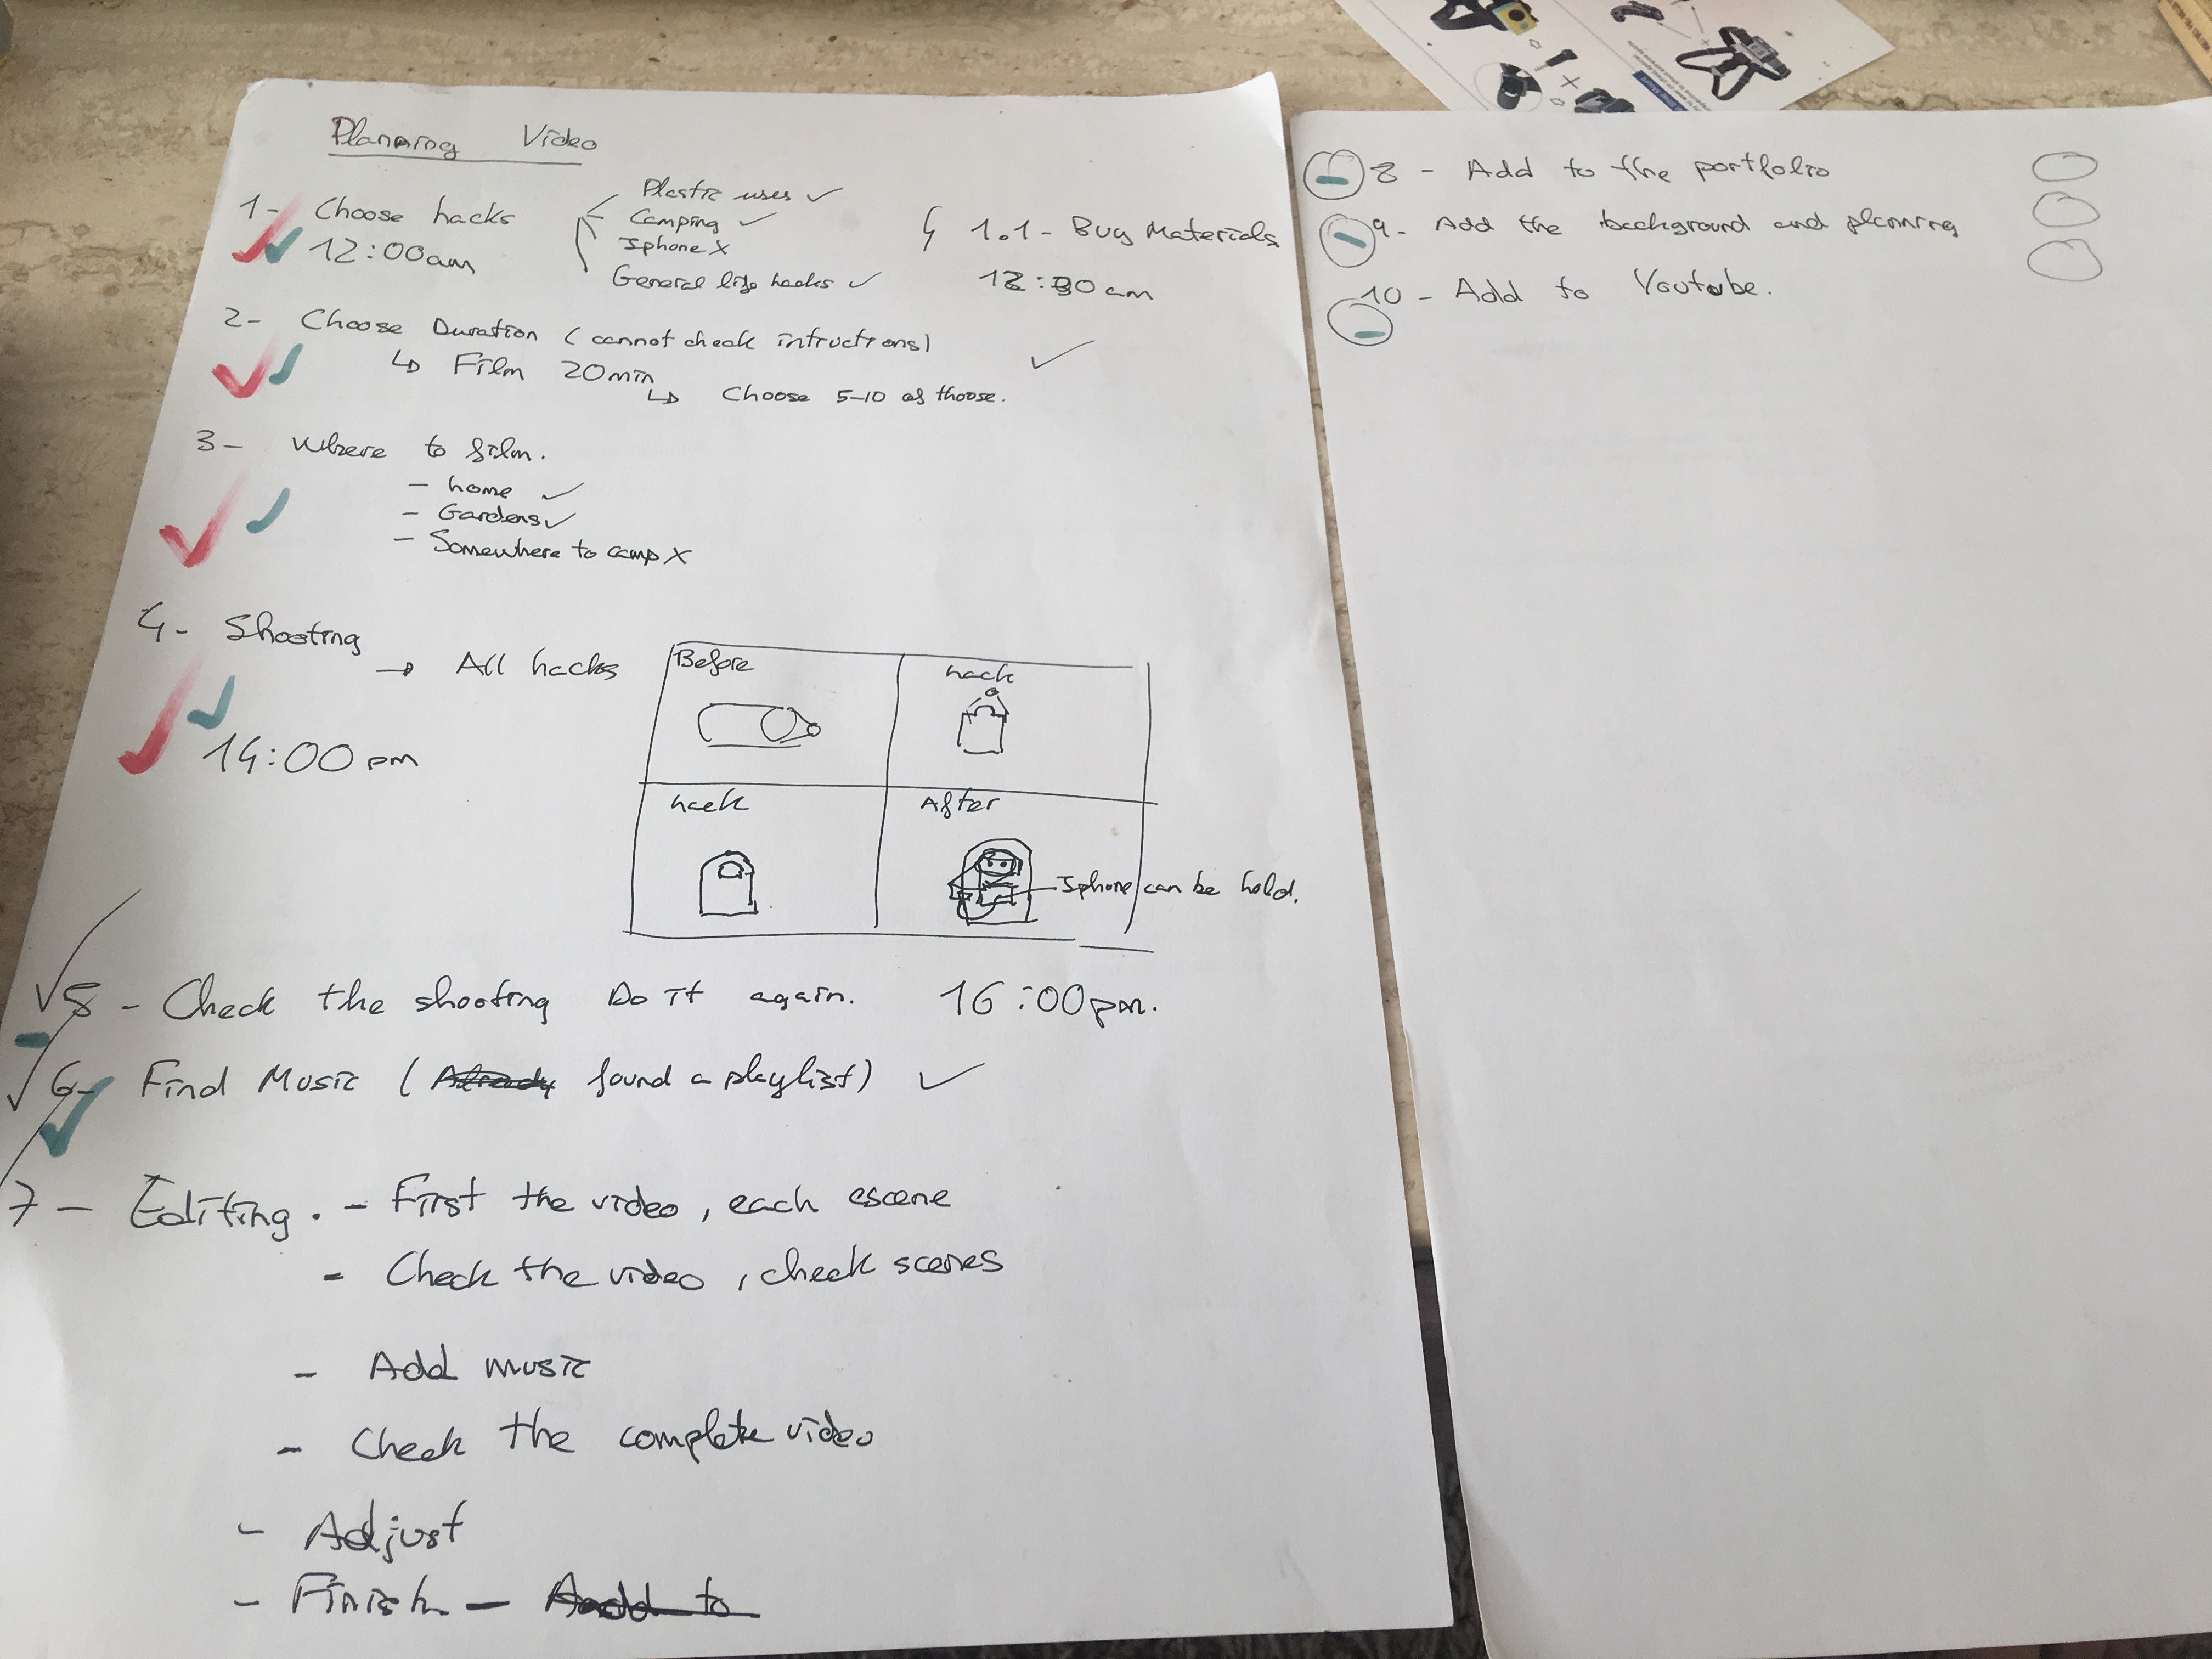 Planning Video
1- Choose hacks
12:00am
Plastic uses ✓
Camping ✓
Iphone X
General life hacks ✓
1.1- Buy Materials
12:30am
2- Choose Duration (cannot check intructions)
↳ Film 20min
↳ Choose 5-10 of thoose.
3- Where to film.
- home ✓
- Gardens ✓
- Somewhere to camp X
4- Shooting → All hacks
14:00pm
Before
hack
hack
After
Iphone can be hold.
5- Check the shooting Do it again. 16:00pm.
6- Find Music (Already found a playlist) ✓
7- Editing. - First the video, each escene
- Check the video, check scenes
- Add music
- Check the complete video
- Adjust
- Finish - Aadd to
8 - Add to the portfolio
9- Add the background and planning
10 - Add to Youtube.